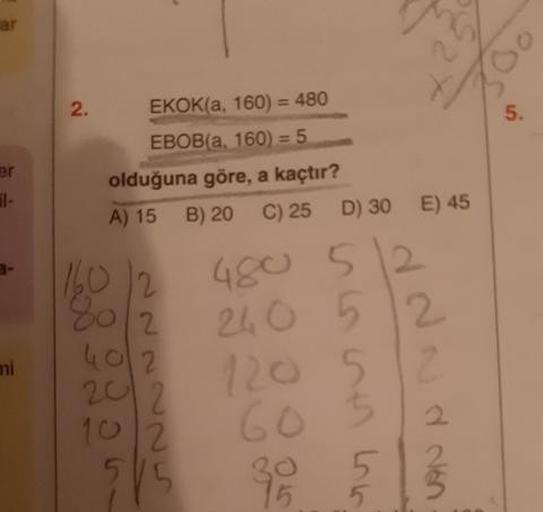 ar
25
x 300
2. EKOK(a, 160) = 480
5.
EBOB(a, 160) = 5
er
olduğuna göre, a kaçtır?
il-
A) 15 B) 20 C) 25 D) 30 E) 45
a-
160 2 480 5 2
80 2 240 5 2
mi
40 2 120 5 2
20 2 60 5 2
10 2 30 5 2
5 5 15 5 3